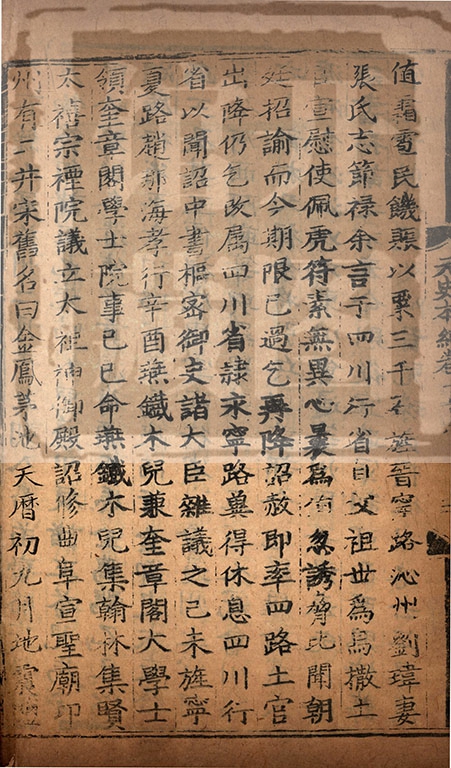 值霜雪民饑賑以粟三千石旌晉寧路沁州劉瑋妻
張氏志節祿余言于四川行省自父祖世爲烏撒土
宣慰使佩虎符素無異心曩爲伯忽誘脅比聞朝
廷招諭而今期限已過乞再降詔赦即率四路土官
出降仍乞改属四川省隸永寧路冀得休息四川行
省以聞詔中書樞宻御史諸大臣雜議之己未旌寧
夏路趙那海孝行辛酉燕鐵木兒兼奎章閣大學士
領奎章閣學士院事己巳命燕鐵木兒集翰林集賢
太禧宗禋院議立太祖神御殿詔修曲阜宣聖廟卭
州有二井宋舊名曰金鳳茅池天曆初九月地震鹽
元史本紀卷